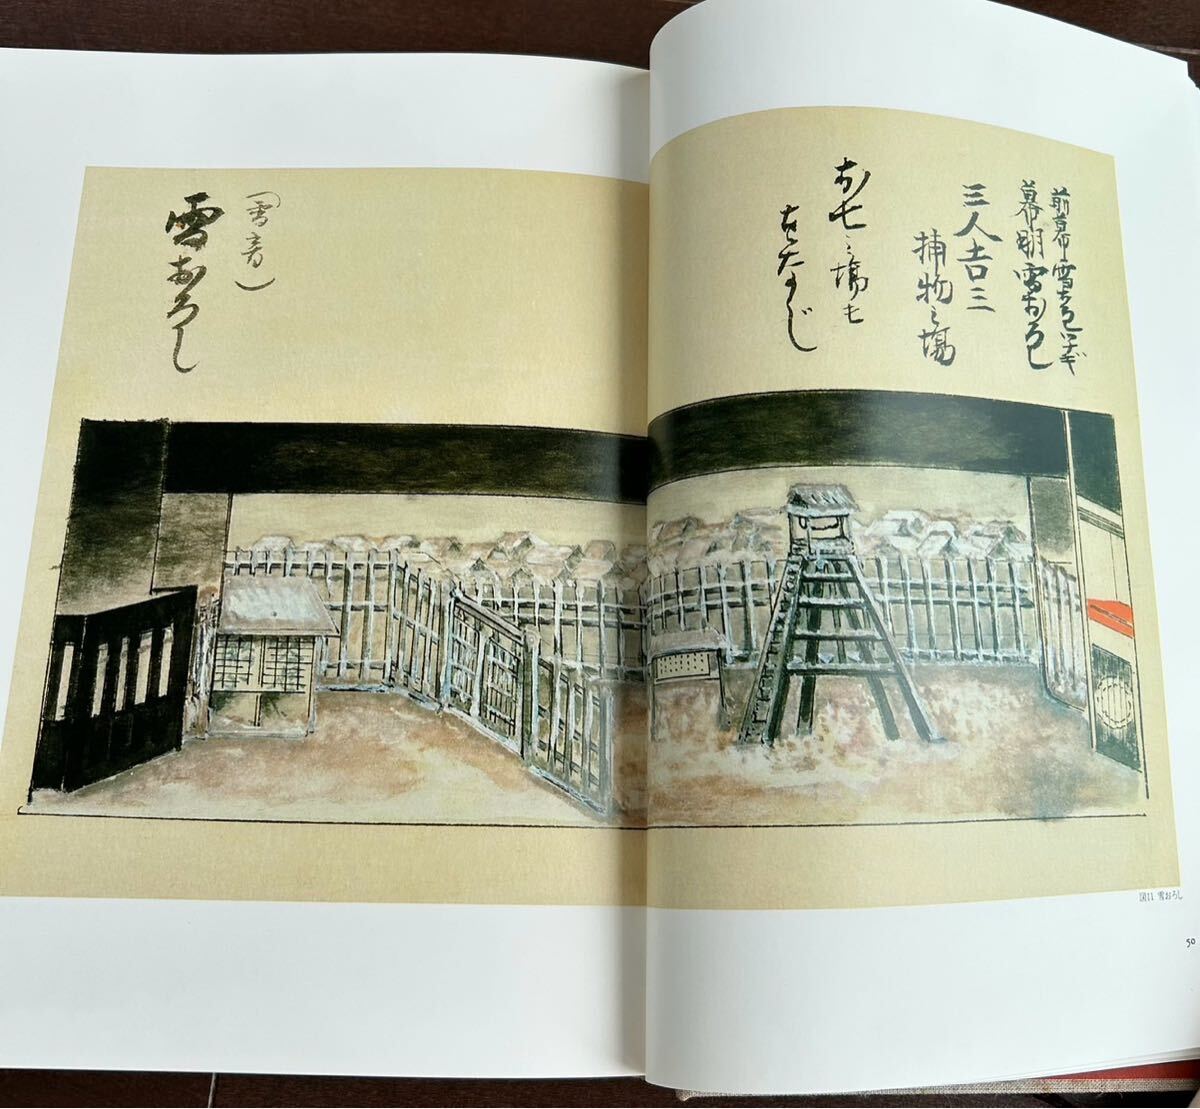 前幕雪おろしツナギ
幕明雪おろし
三人吉三
捕物之場
お七之場も
おなじ
(雪音)
雪おろし
図11 雪おろし
50